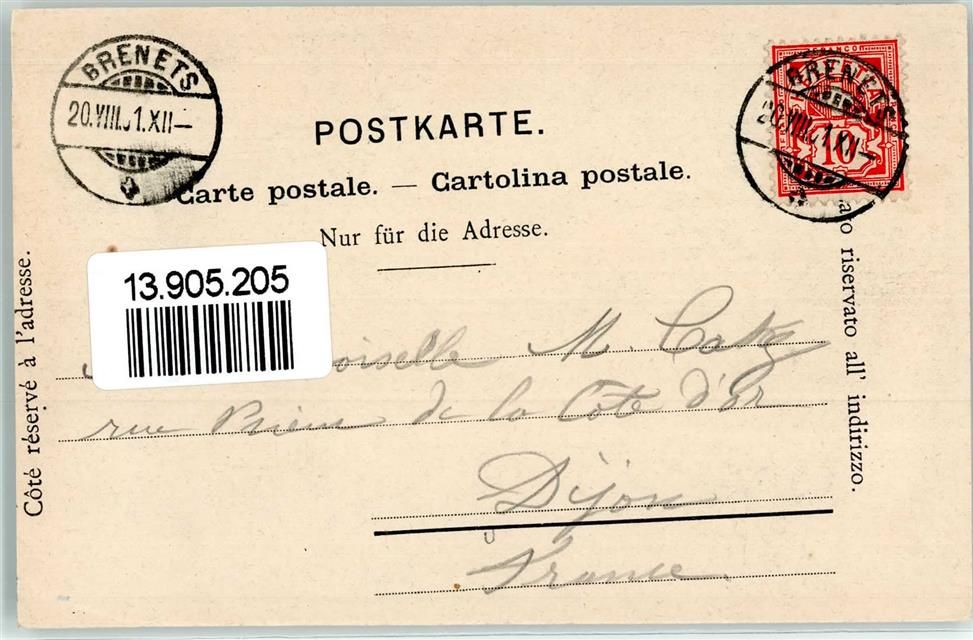 BRENETS
20.VIII.01.XII—
FRANCO
10
BRENETS
20.VIII.01.XII—
POSTKARTE.
Carte postale. — Cartolina postale.
Nur für die Adresse.
13.905.205
Côté réservé à l'adresse.
ato riservato all' indirizzo.
oiselle M.
rue de la Côte d'Or
Dijon
France